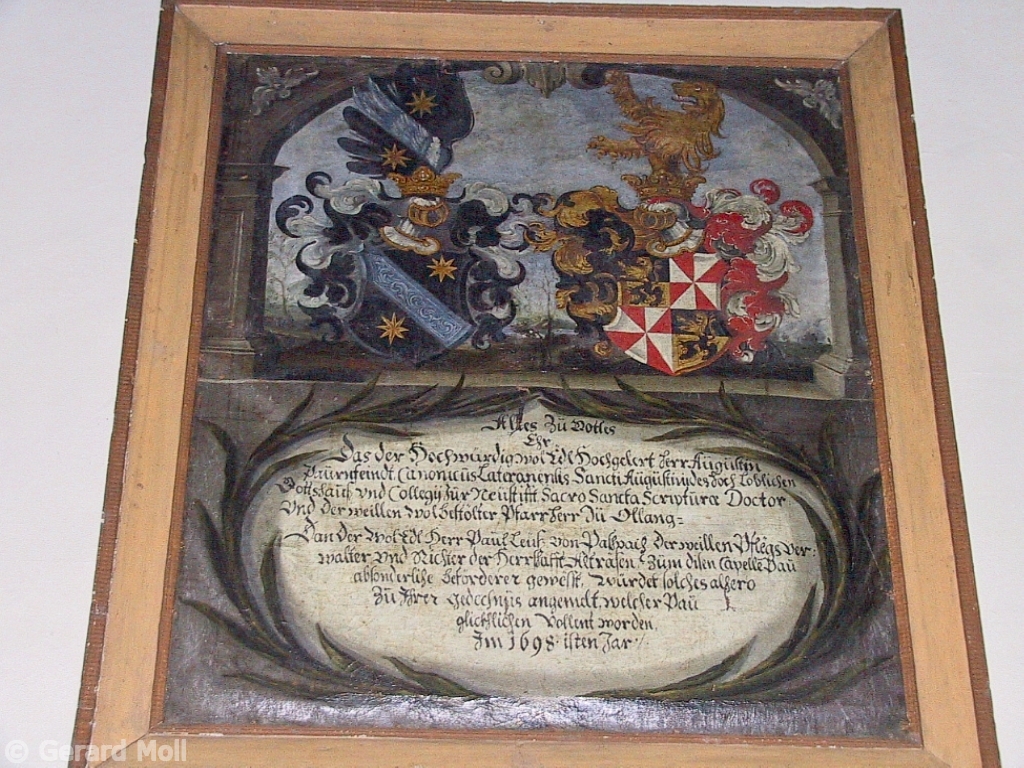 Alles Zü Gottes
Ehr
Das der Hochwürdig wol Edl Hochgelert herr Augustin
Paurnfeindt Canonicus Lateranensis Sancti Augustiny des hoch Loblichen
Gottshauss vnd Collegij zür Neüstifft Sacro Sancta Scriptura Doctor
Vnd der weillen wol bestolter Pfarrherr Zü Ollang=
Dan der Wol Edl Herr Paul von Paßpach der weillen Pflegs ver:
walter vnd Richter der Herrschafft Altrasen Züm disen Capelle Bau
absonderliche beforderer gewesst, würdet solches alhero
Zü Ihrer angemalt, welcher Paü
glickhlichen Vollent worden,
Im 1698 isten Jar
© Gerard Moll